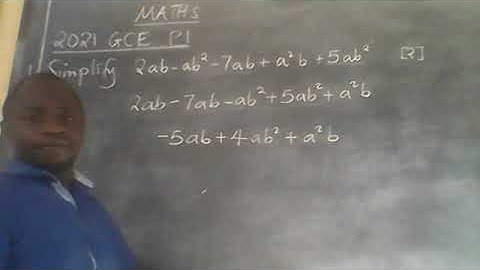 MATHS
2021 GCE P1
Simplify 2ab-ab²-7ab+a²b+5ab² [2]
2ab-7ab-ab²+5ab²+a²b
-5ab+4ab²+a²b